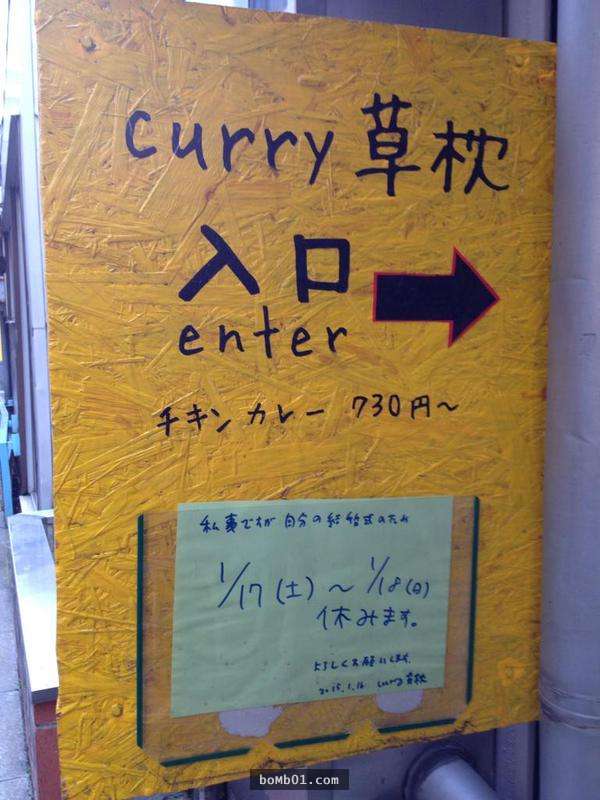 curry 草枕
入口
enter
チキンカレー 730円〜
私事ですが 自分の結婚式のため
1/17(土)〜1/18(日)
休みます。
よろしくお願いします。
2015.1.16 curry草枕
boMb01.com